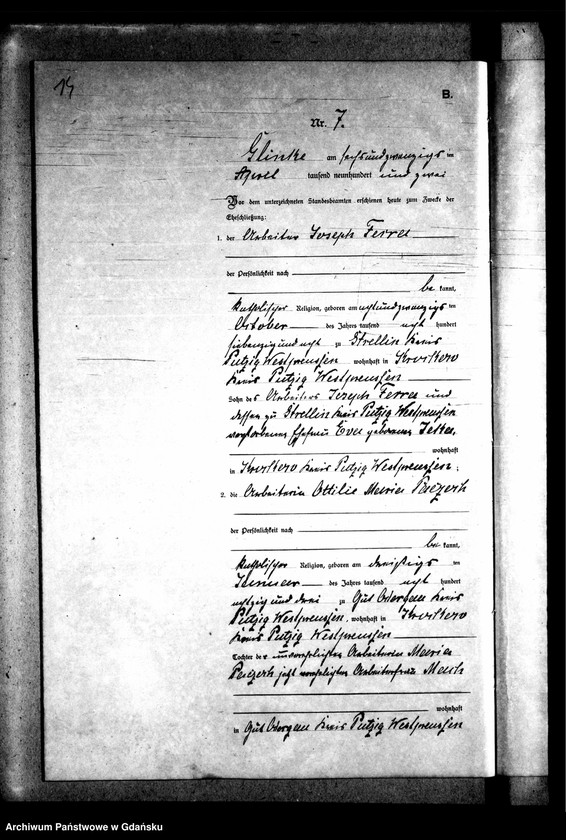 14
B.
Nr. 7.
Glinke am sechsundzwanzigs ten
April tausend neunhundert und zwei
Vor dem unterzeichneten Standesbeamten erschienen heute zum Zwecke der
Eheschließung:
1. der Arbeiter Joseph Ferra
der Persönlichkeit nach
be kannt,
katholischer Religion, geboren am achtundzwanzigs ten
October des Jahres tausend acht hundert
siebenzig und acht zu Strellin Kreis
Putzig Westpreussen wohnhaft in
Kreis Putzig Westpreussen
Sohn des Arbeiters Joseph Ferra und
dessen zu Strellin Kreis Putzig Westpreussen
verstorbenen Ehefrau Eva geborenen
wohnhaft
in Kreis Putzig Westpreussen;
2. die Arbeiterin Ottilie Maria
der Persönlichkeit nach
be kannt,
katholischer Religion, geboren am dreissigs ten
Januar des Jahres tausend acht hundert
achtzig und drei zu Gut Kreis
Putzig Westpreussen, wohnhaft in
Kreis Putzig Westpreussen
Tochter der unverehelichten Arbeiterin Maria
jetzt verehelichten Arbeiterfrau
wohnhaft
in Gut Kreis Putzig Westpreussen
Archiwum Państwowe w Gdańsku